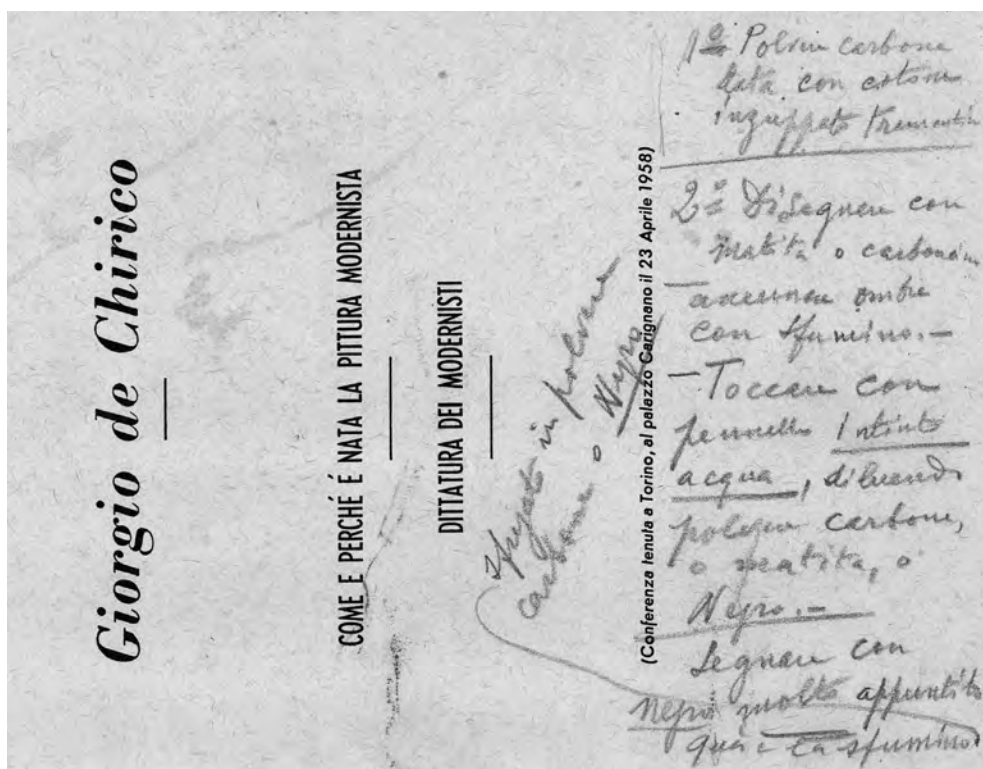 Giorgio de Chirico
COME E PERCHÉ É NATA LA PITTURA MODERNISTA
DITTATURA DEI MODERNISTI
(Conferenza tenuta a Torino, al palazzo Carignano il 23 Aprile 1958)
in polvere
carbone o Negro
1º Polvere carbone
data con cotone
inzuppato trementin
2º Disegnare con
matita o carboncin
accennare ombre
con sfumino.—
— Toccare con
pennello intinto
acqua, diluendo
polvere carbone,
o matita, o
Negro.—
Segnare con
Negro molto appuntito
qua e là sfumino